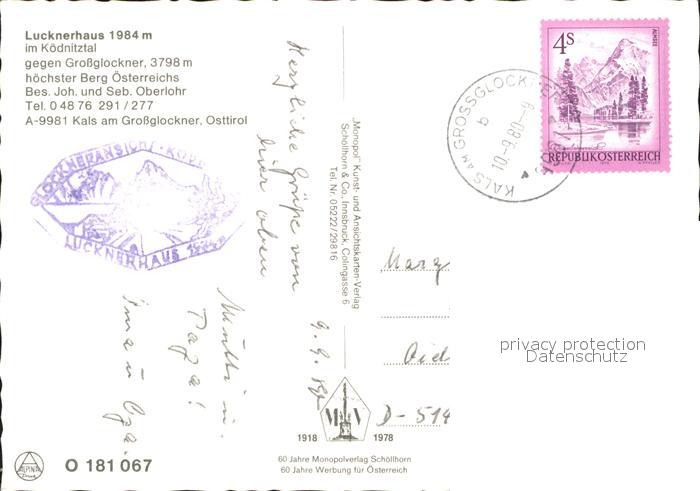 Lucknerhaus 1984 m
im Ködnitztal
gegen Großglockner, 3798 m
höchster Berg Österreichs
Bes. Joh. und Seb. Oberlohr
Tel. 0 48 76 291 / 277
A-9981 Kals am Großglockner, Osttirol
GLOCKNERANSICHT · KÖD
LUCKNERHAUS
Herzliche Grüße von
hier oben
Mutti u.
Papa!
Oma u Opa.
„Monopol" Kunst- und Ansichtskarten-Verlag
Schöllhorn & Co., Innsbruck, Colingasse 6
Tel. Nr. 05222/29816
4 S
ALMSEE
REPUBLIK ÖSTERREICH
KALS AM GROSSGLOCKNER
b
10.-9.80.-9
D-514
privacy protection
Datenschutz
1918 MSV 1978
60 Jahre Monopolverlag Schöllhorn
60 Jahre Werbung für Österreich
ALPINA
Druck
O 181 067